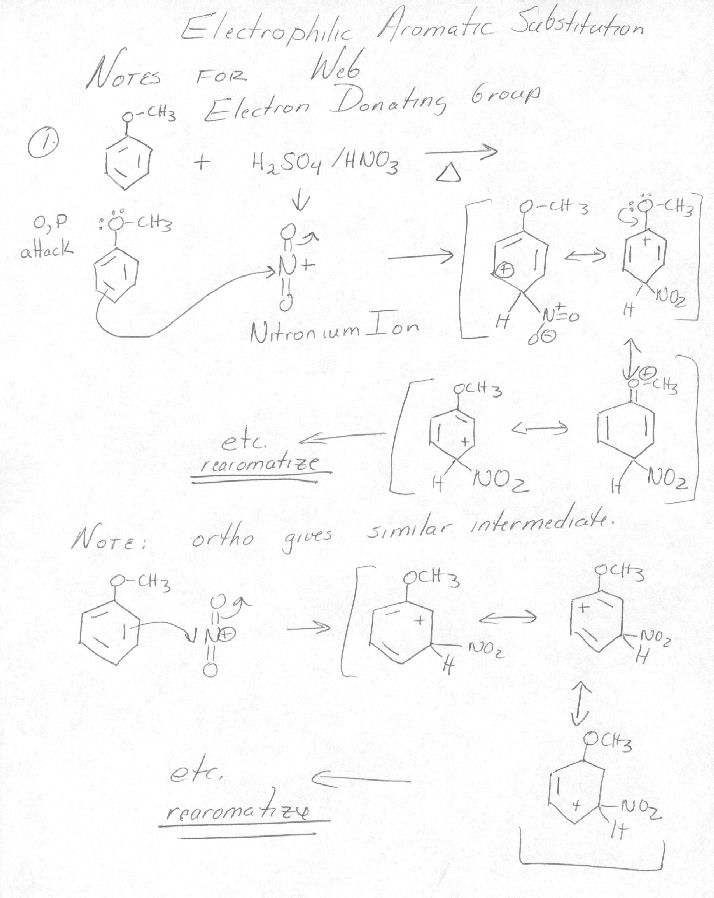 Electrophilic Aromatic Substitution
NOTES FOR Web
Electron Donating Group
1.
O-CH3
+ H2SO4/HNO3
Δ
O,P
attack
:Ö-CH3
O
N+
O
Nitronium Ion
O-CH3
+
H
N+=O
O⊖
:Ö-CH3
+
H
NO2
OCH3
+
H
NO2
O⊕-CH3
H
NO2
etc.
rearomatize
NOTE: ortho gives similar intermediate.
O-CH3
O
N⊕
O
OCH3
+
NO2
H
OCH3
+
NO2
H
OCH3
+
NO2
H
etc.
rearomatize